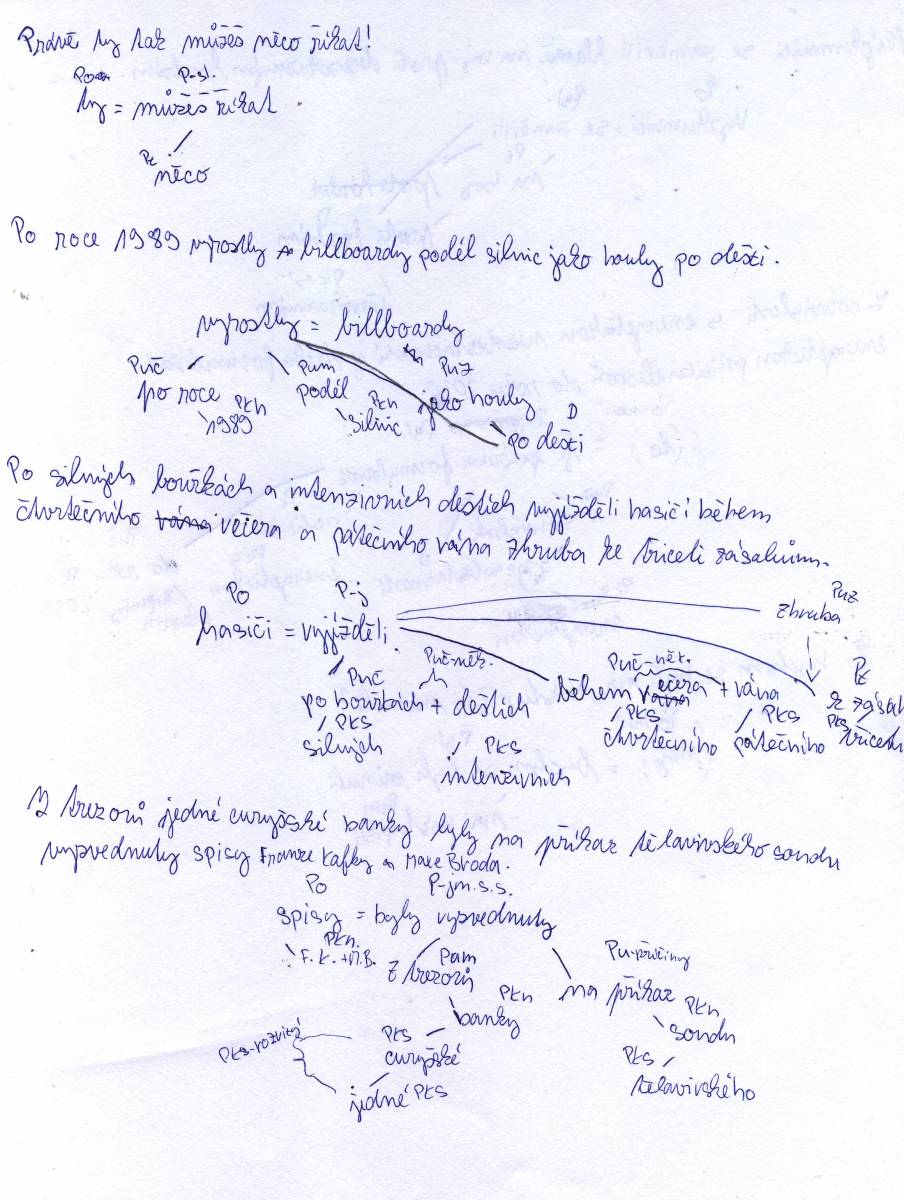 Právě ty tak můžeš něco říkat!
Podm. P-sl.
ty = můžeš říkat
Pt
něco
Po roce 1989 vyrostly billboardy podél silnic jako houby po dešti.
vyrostly = billboardy
Puč Pum Puz
po roce podél jako houby
Pkn Pkn D
1989 silnic po dešti
Po silných bouřkách a intenzivních deštích vyjížděli hasiči během
čtvrtečního rána večera a pátečního rána zhruba ke třiceti zásahům.
Po P-j Puz
hasiči = vyjížděli zhruba
Puč Puč-něk. Puč něk. Pt
po bouřkách + deštích během večera + rána ke zásah
PKS PKS PKS PKS
silných čtvrtečního pátečního třiceti
PKS
intenzivních
Z trezorů jedné curyšské banky byly na příkaz telavivského soudu
vyzvednuty spisy Franze Kafky a Maxe Broda.
Po P-jm.s.s.
spisy = byly vyzvednuty
Pkn. Pum Pu-příčiny
F.K.+M.B. z trezorů na příkaz
Pkn Pkn
banky soudu
PKS-rozvitý PKS PKS
curyšské telavivského
jedné PKS